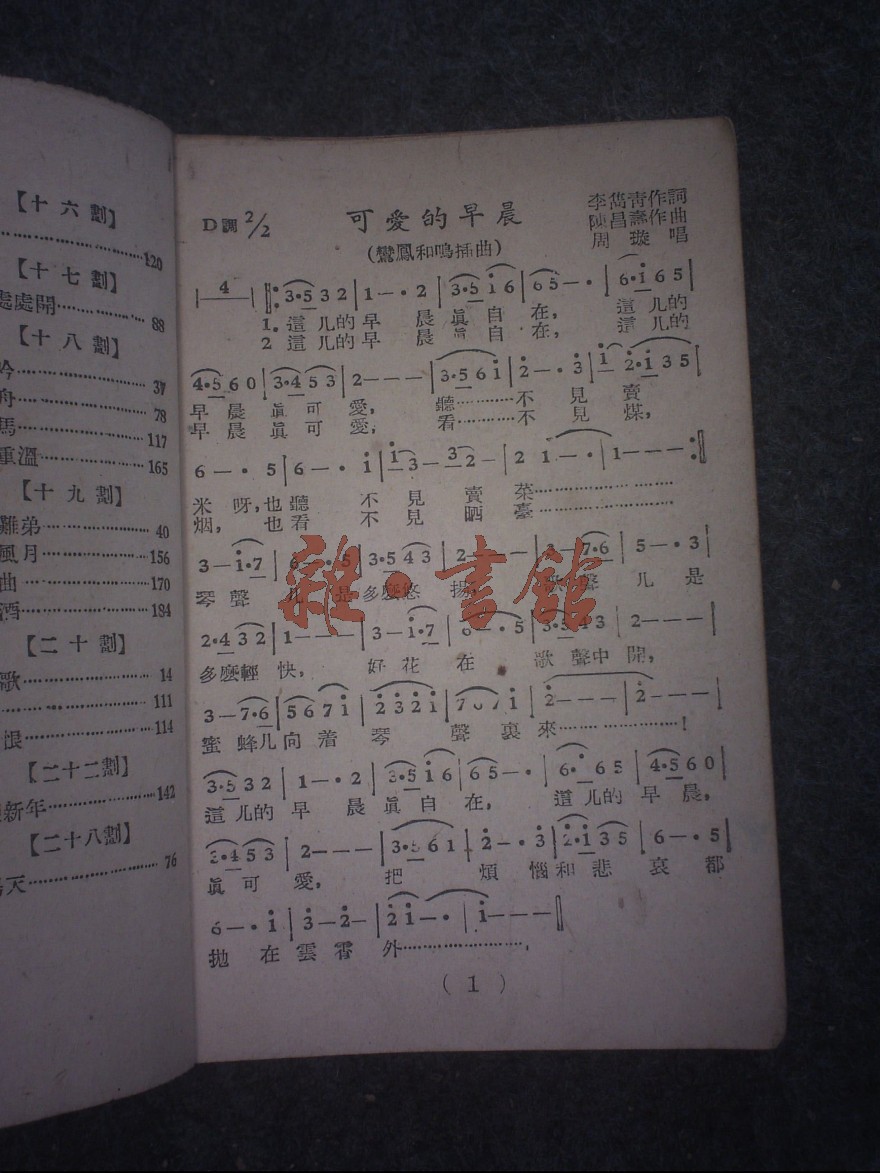 【十六劃】
120
【十七劃】
處處開 88
【十八劃】
吟 37
舟 78
馬 117
重溫 165
【十九劃】
難弟 40
風月 156
曲 170
酒 184
【二十劃】
歌 14
111
恨 114
【二十二劃】
新年 142
【二十八劃】
天 76
D調 2/2 可愛的早晨 李雋青作詞
(鸞鳳和鳴插曲) 陳昌壽作曲
周璇唱
4 3·5 3 2 | 1 — · 2 | 3·5 i 6 | 6 5 — · | 6·i 6 5 |
1. 這儿的早晨眞自在, 這儿的
2 這儿的早晨眞自在, 這儿的
4·5 6 0 | 3·4 5 3 | 2 — — — | 3·5 6 i | 2 — · 3 | i i 2·i 3 5 |
早晨眞可愛, 聽………不見賣
早晨眞可愛, 看………不見煤,
6 — · 5 | 6 — · i | i 3 — 3 2 — | 2 1 — · | 1 — — — :||
米呀,也聽不見賣菜………
烟, 也看不見晒臺………
3 — i·7 | 6 — · 5 | 3·5 4 3 | 2 — — — | 3 — 7·6 | 5 — · 3 |
琴聲儿是多麼悠揚, 歌聲儿是
2·4 3 2 | 1 — — — | 3 — i·7 | 6 — · 5 | 3·5 4 3 | 2 — — — |
多麼輕快, 好花在歌聲中開,
3 — 7·6 | 5 6 7 i | 2 3 2 i | 7 6 7 i | 2 — — — | 2 — — — |
蜜蜂儿向着琴聲裏來………!
3·5 3 2 | 1 — · 2 | 3·5 i 6 | 6 5 — · | 6· i 6 5 | 4·5 6 0 |
這儿的早晨眞自在, 這儿的早晨,
3·4 5 3 | 2 — — — | 3·5 6 1 | 2 — · 3 | 2·i 3 5 | 6 — · 5 |
眞可愛, 把煩惱和悲哀都
6 — · i | 3 — 2 — | 2 i — · | i — — — ||
拋在雲霄外………,
(1)
雜·書館